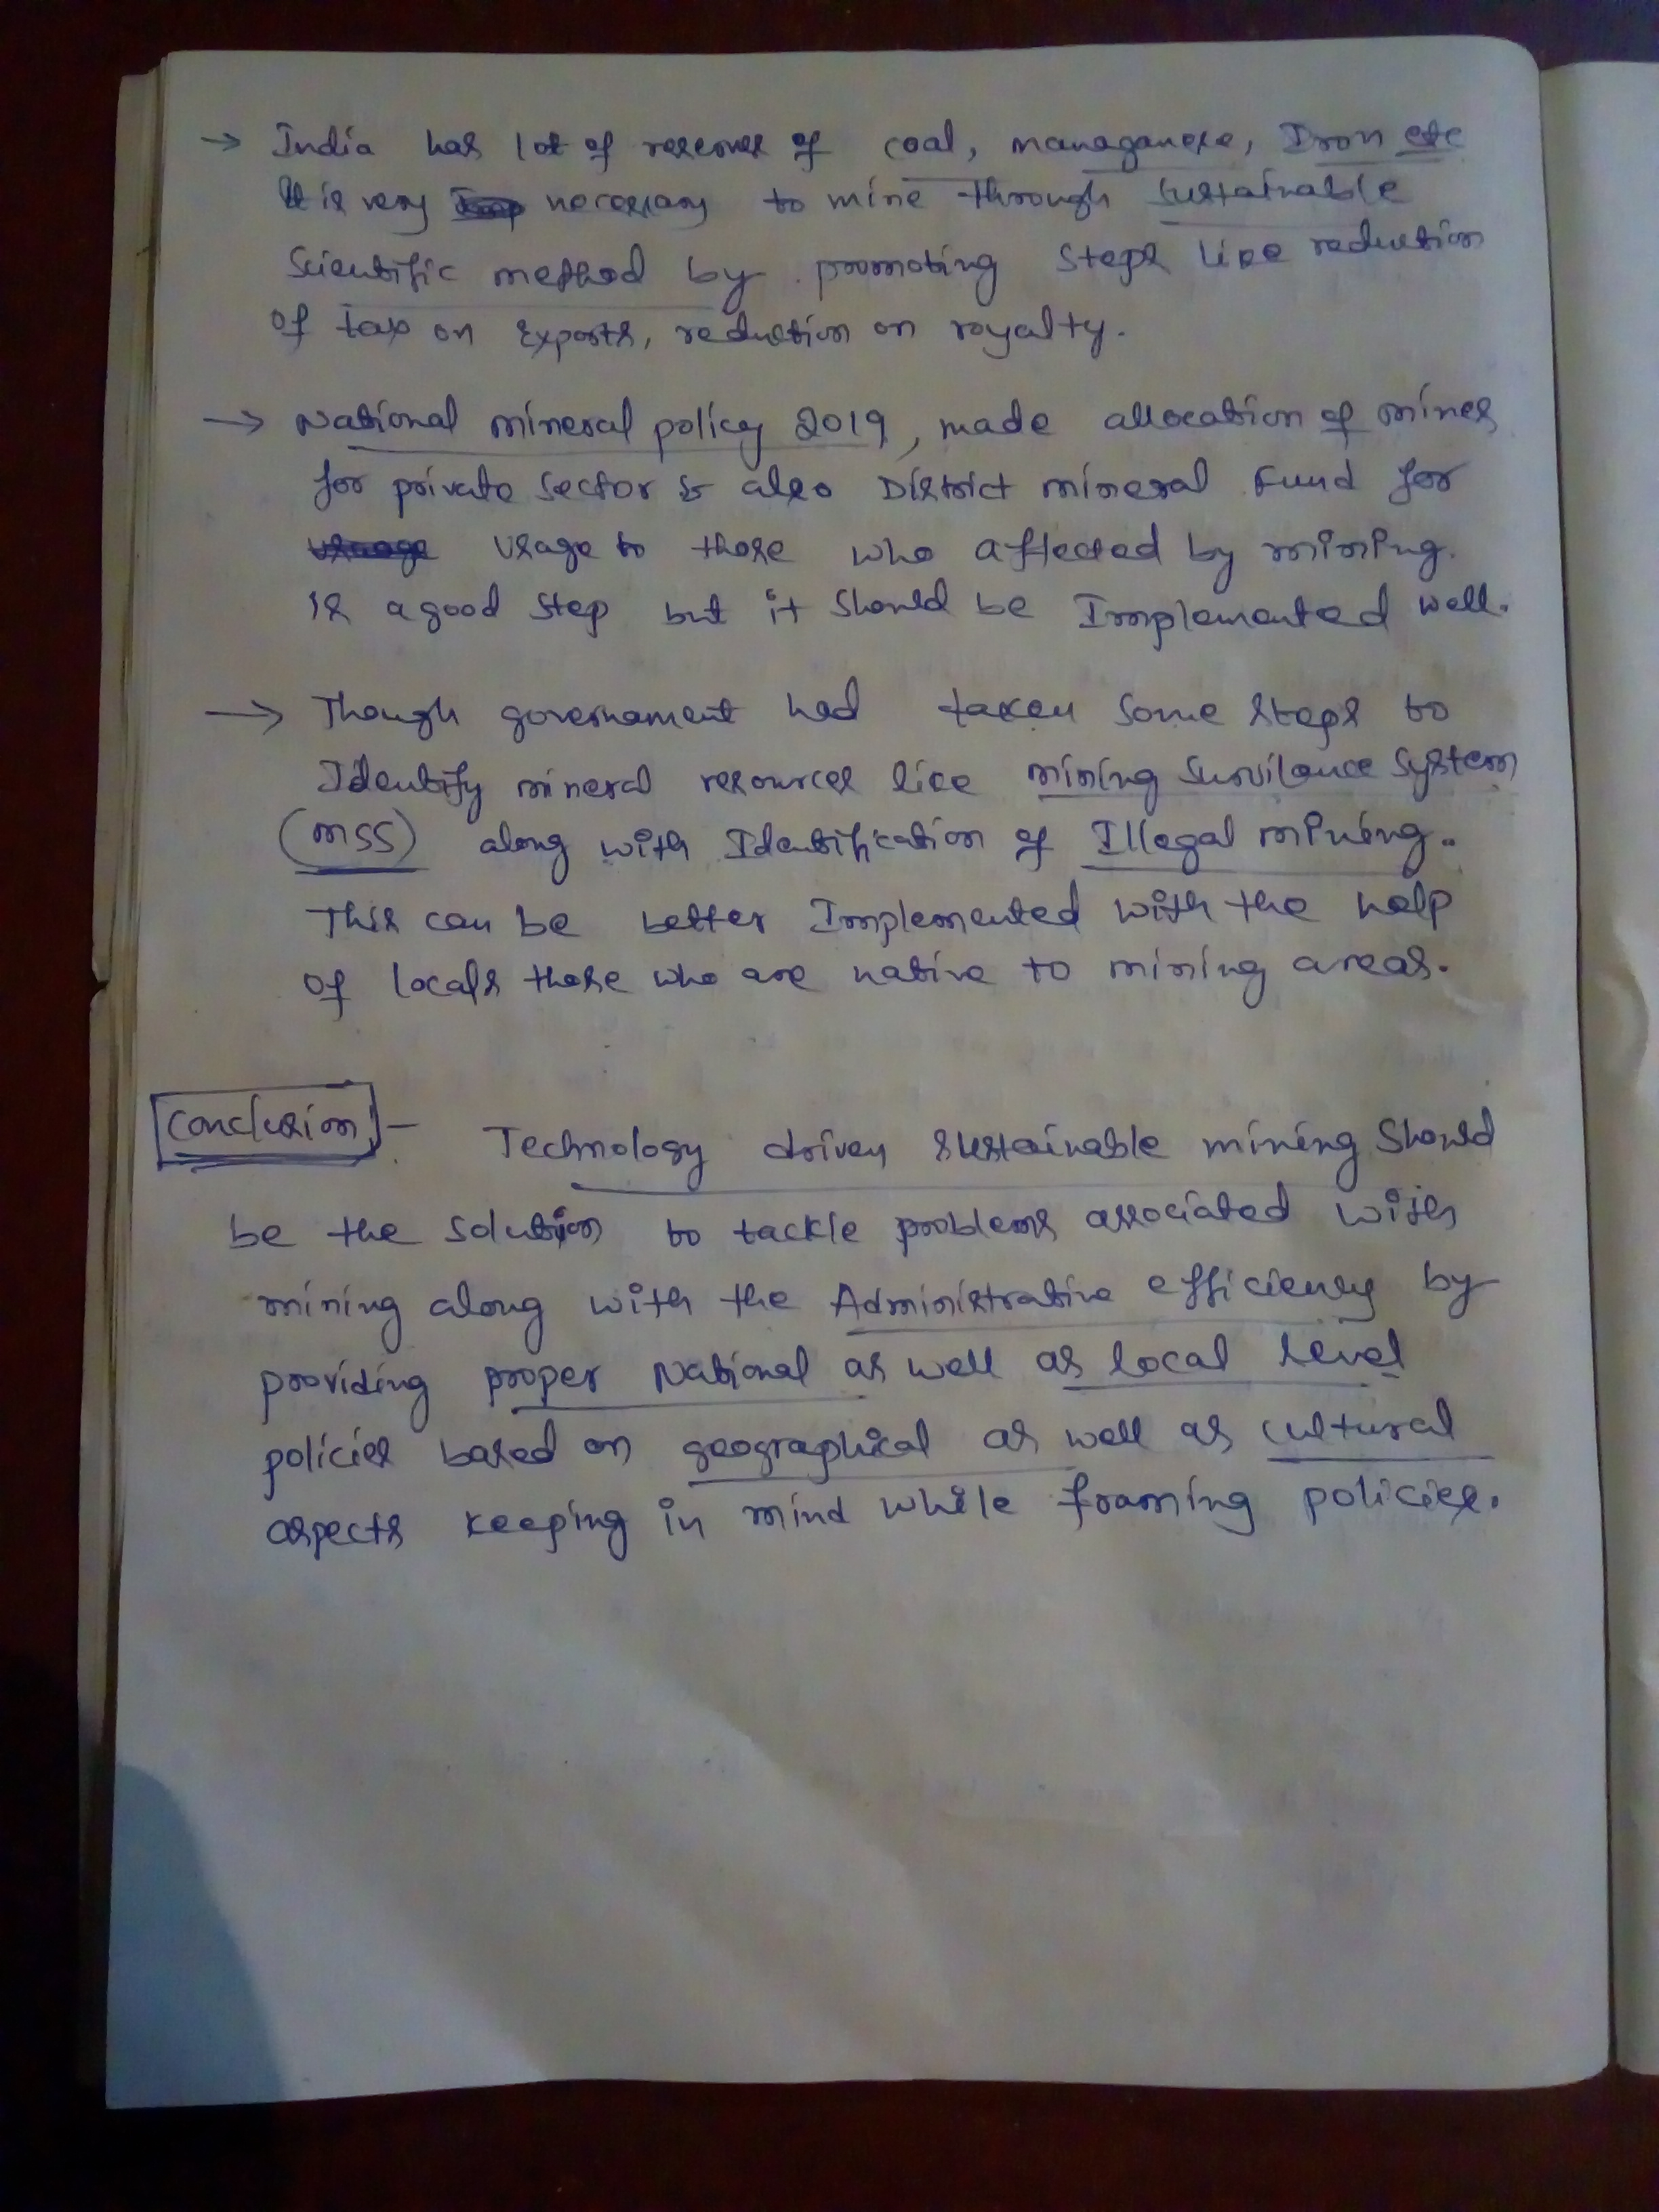 → India has lot of reserves of coal, managanese, Iron etc
It is very necessary to mine through sustainable
Scientific method by promoting steps like reduction
of tax on Exports, reduction on royalty.
→ National mineral policy 2019, made allocation of mines
for private sector & also District mineral Fund for
usage to those who affected by mining.
is a good step but it should be Implemented well.
→ Though governament had taken some steps to
Identify mineral resources like mining Survilance System
(MSS) along with Identification of Illegal mining.
This can be better Implemented with the help
of locals those who are native to mining areas.
Conclusion :- Technology driven sustainable mining should
be the solution to tackle problems associated with
mining along with the Administrative efficiency by
providing proper National as well as local level
policies based on geographical as well as cultural
aspects keeping in mind while framing policies.